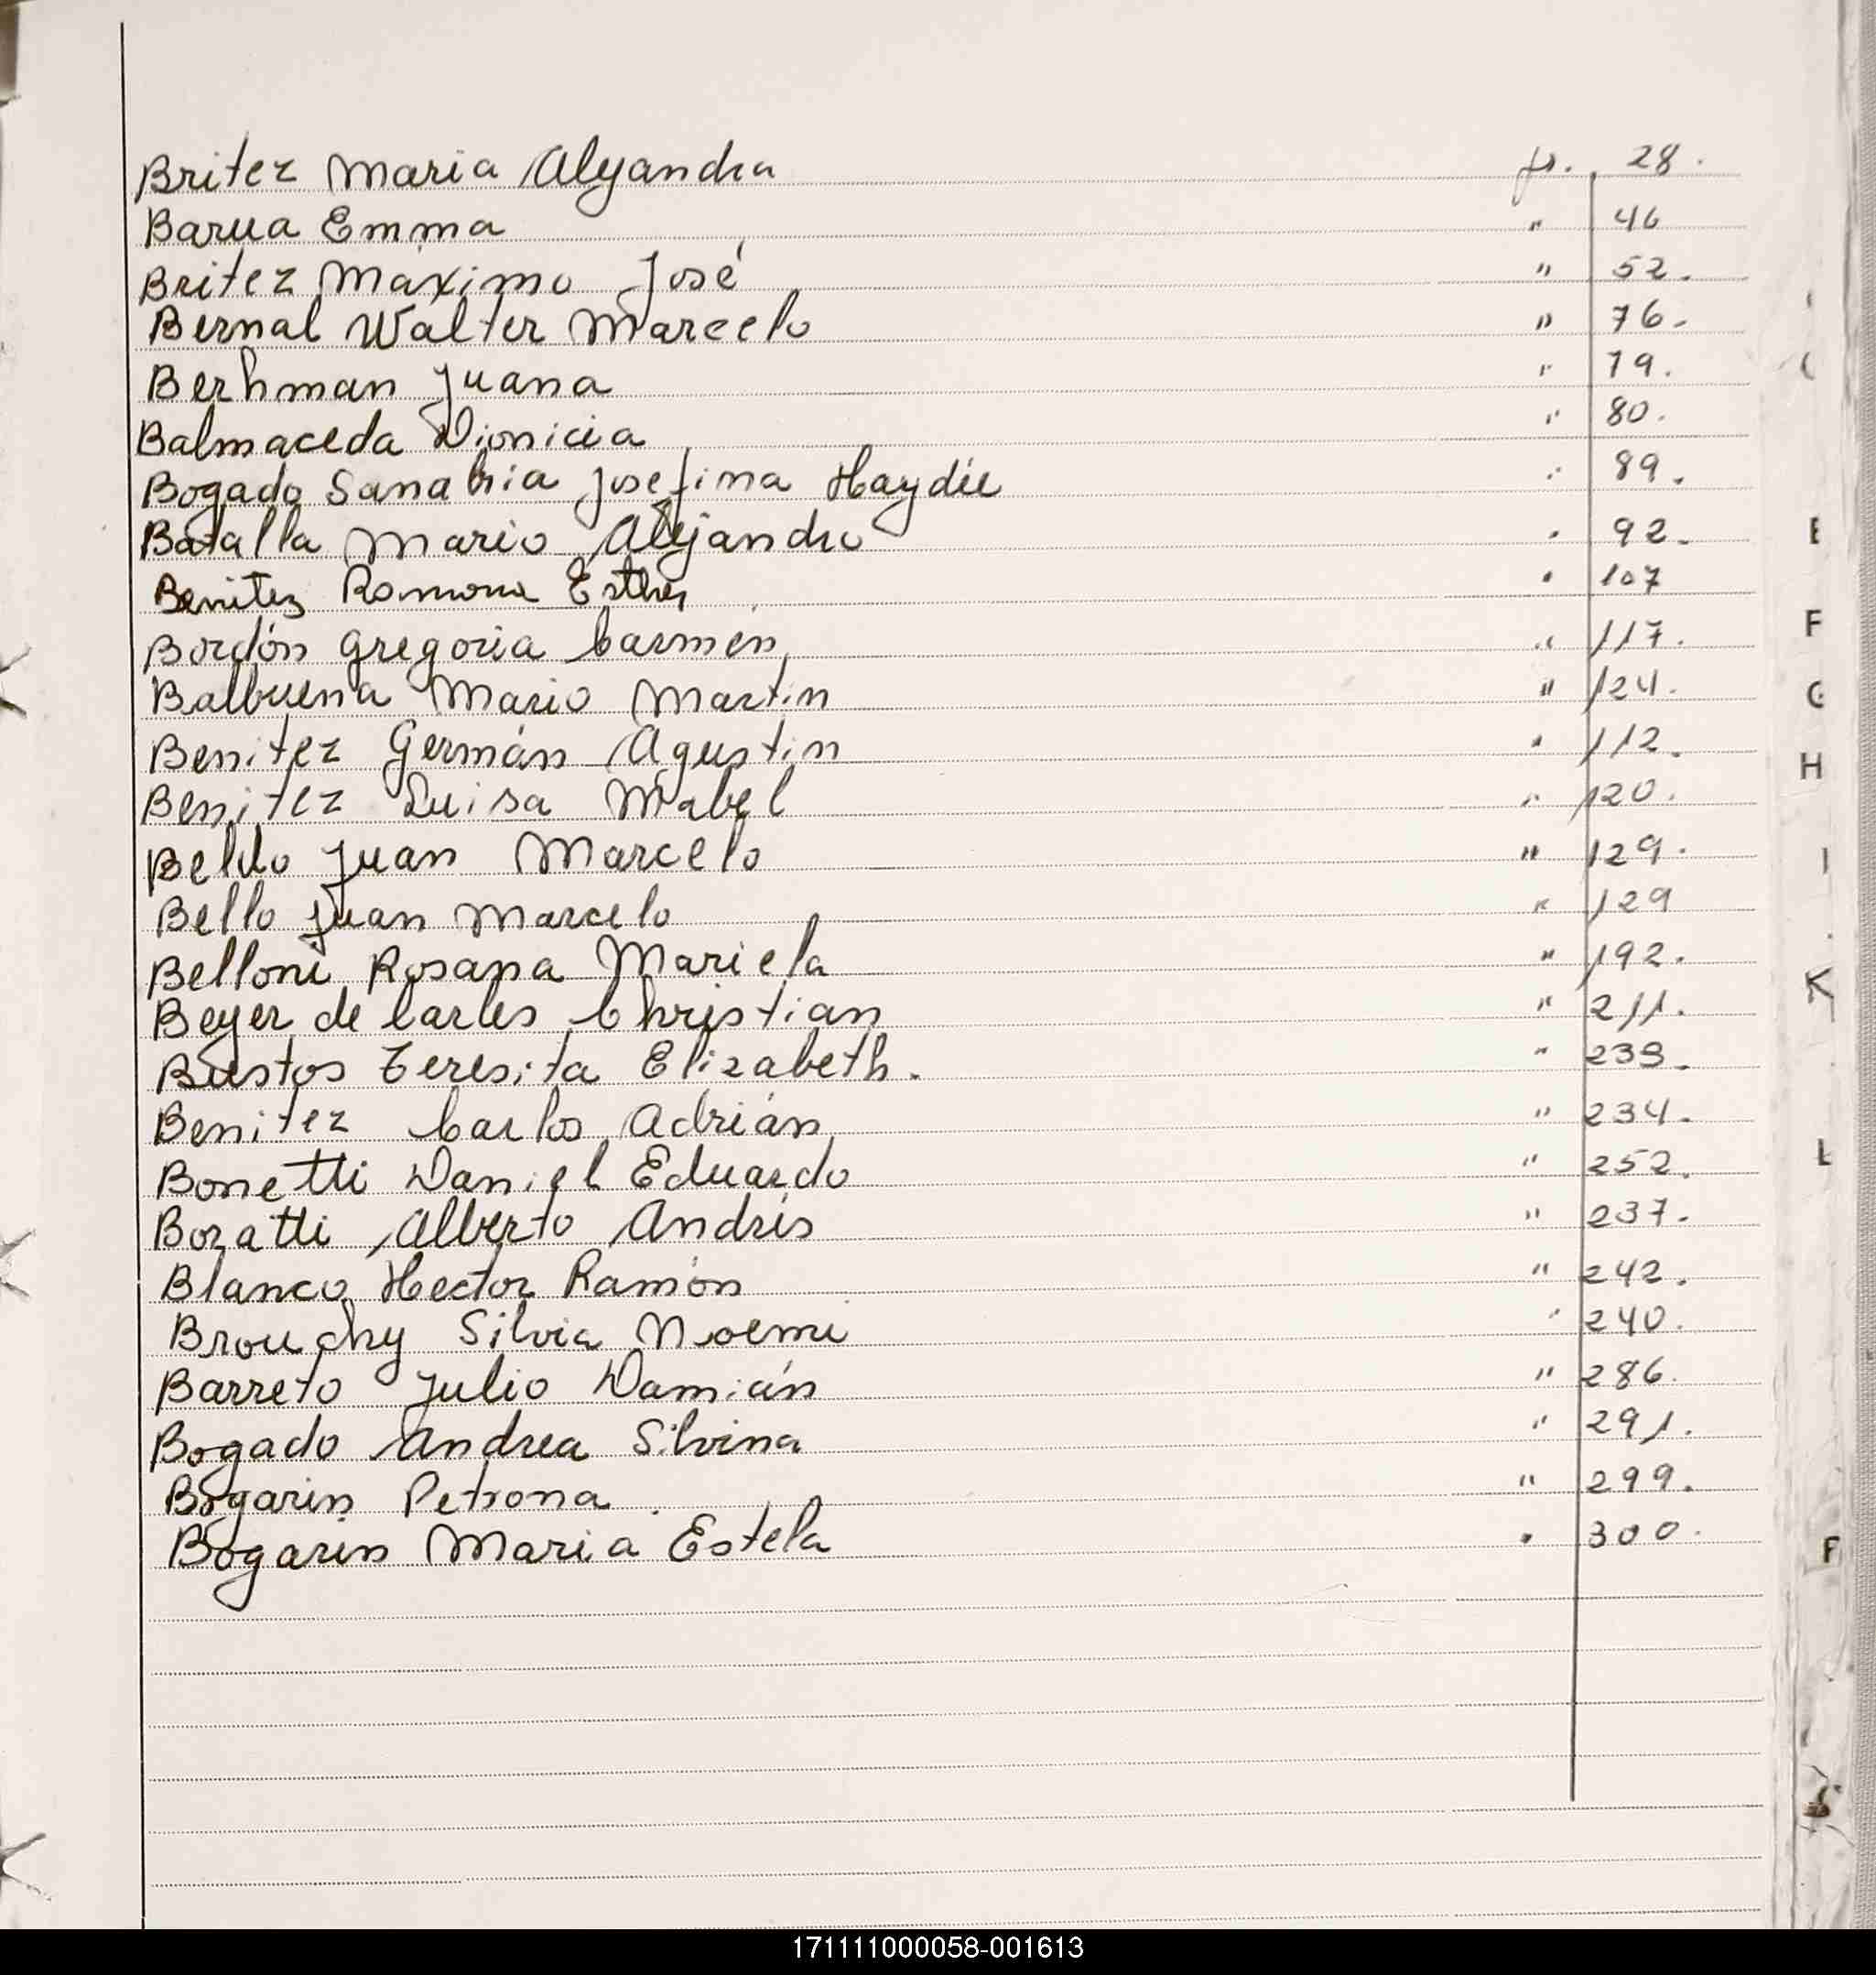 Britez Maria Alejandra fs. 28.
Barua Emma " 46
Britez Máximo José " 52.
Bernal Walter Marcelo " 76.
Berhman Juana " 79.
Balmaceda Dionicia " 80.
Bogado Sanabria Josefina Haydée " 89.
Batalla Mario Alejandro " 92.
Benitez Ramona Esther " 107
Bordón Gregoria Carmen " 117.
Balbuena Mario Martin " 124.
Benitez Germán Agustin " 112.
Benitez Luisa Mabel " 120.
Beldo Juan Marcelo " 129.
Bello Juan Marcelo " 129
Belloni Rosana Mariela " 192.
Beyer de Carles Christian " 211.
Bustos Teresita Elizabeth. " 233.
Benitez Carlos Adrián " 234.
Bonetti Daniel Eduardo " 252.
Bozatti Alberto Andrés " 237.
Blanco Hector Ramón " 242.
Brouchy Silvia Noemi " 240.
Barreto Julio Damián " 286.
Bogado Andrea Silvina " 291.
Bogarin Petrona " 299.
Bogarin Maria Estela " 300.
E
F
G
H
I
K
L
F
171111000058-001613